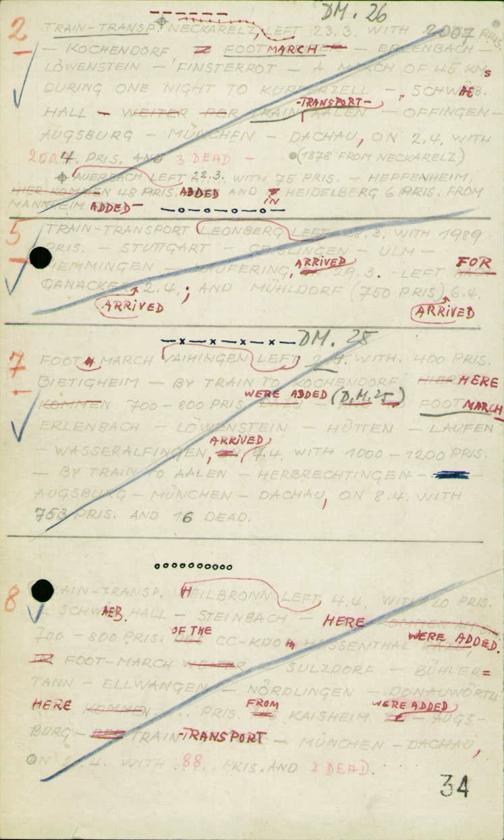 DM. 26
2 TRAIN-TRANSP. NECKARELZ LEFT 23.3. WITH 2007 PRIS.
– KOCHENDORF FOOT MARCH – ERLENBACH –
LÖWENSTEIN – FINSTERROT – A MARCH OF 45 KMs
DURING ONE NIGHT TO KUPFERZELL –, SCHWAEB.
-TRANSPORT-
HALL – WEITER PER TRAIN AALEN – OFFINGEN –
AUGSBURG – MÜNCHEN – DACHAU, ON 2.4. WITH
2004 PRIS. AND 3 DEAD – (1878 FROM NECKARELZ)
AUERBACH LEFT 22.3. WITH 75 PRIS. – HEPPENHEIM,
HIER KOMMEN 48 PRIS. ADDED AND IN HEIDELBERG 6 PRIS. FROM
MANNHEIM ADDED –
5 TRAIN-TRANSPORT LEONBERG LEFT 3. WITH 1989
PRIS. – STUTTGART – – ULM –
MEMMINGEN – KAUFERING, ARRIVED 29.3. – LEFT FOR
GANACKER 2.4. ; AND MÜHLDORF (750 PRIS) 6.4.
ARRIVED ARRIVED
DM. 25
7 FOOT MARCH VAIHINGEN LEFT 2.4. WITH. 400 PRIS.
BIETIGHEIM – BY TRAIN TO KOCHENDORF HIER HERE
KOMMEN 700 – 800 PRIS. WERE ADDED (D.M. 25) FOOT MARCH
ERLENBACH – LÖWENSTEIN – HÜTTEN – LAUFEN
– WASSERALFINGEN, ARRIVED 7.4. WITH 1000 – 1200 PRIS.
– BY TRAIN TO AALEN – HERBRECHTINGEN –
AUGSBURG – MÜNCHEN – DACHAU, ON 8.4. WITH
PRIS. AND 16 DEAD.
8 TRAIN-TRANSP. HEILBRONN LEFT 4.4. WITH PRIS.
– SCHWAEB. HALL – STEINBACH – HERE
700 – 800 PRIS. OF THE CC-KDO. HESSENTHAL WERE ADDED.
FOOT-MARCH SULZDORF – BÜHLER=
TANN – ELLWANGEN – NÖRDLINGEN – DONAUWÖRTH
HERE KOMMEN PRIS. FROM KAISHEIM WERE ADDED – AUGS-
BURG – TRAIN-TRANSPORT – MÜNCHEN – DACHAU,
ON .4. WITH 88 PRIS. AND 2 DEAD.
34